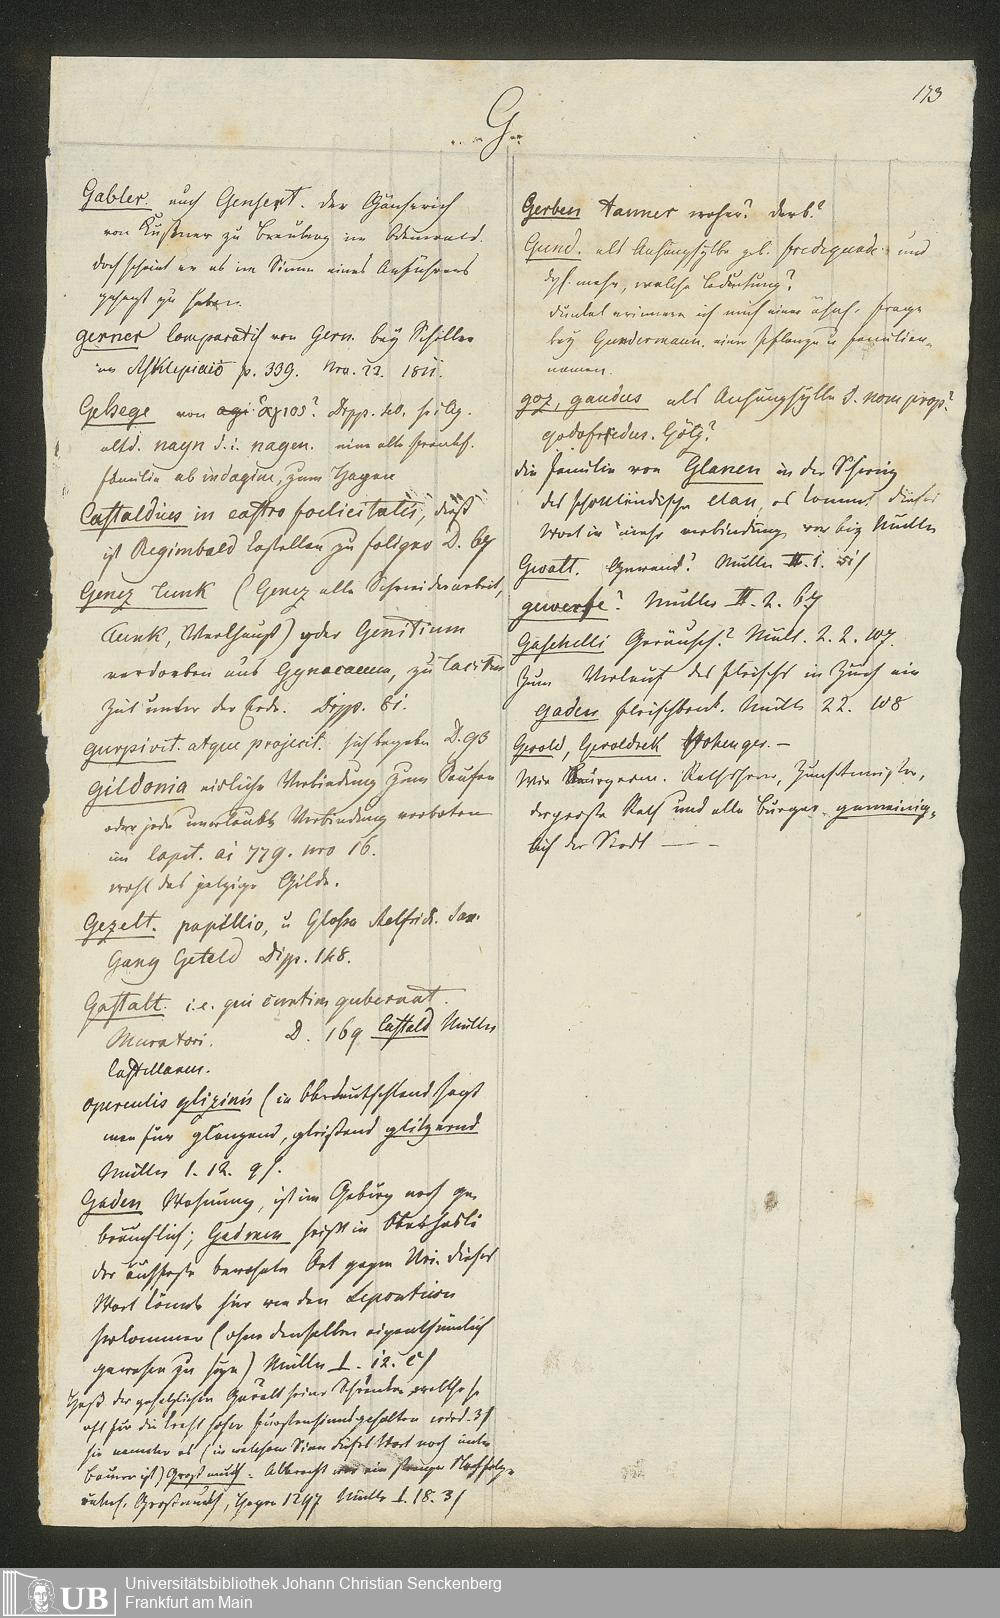 173
G
Gabler. auch Gensert. der Gänserich
von Küstner zu Breuberg im Odenwald.
doch scheint er es im Sinne eines Anführers
gesagt zu haben.
gerner Comparatif von Gern. bey Schiller
im Asklepiais p. 339. Nro. 22. 1811.
Gehege von agi ἅγιος? Dipp. heilig.
altd. nayn d. i. nagen. eine alte
familie ab indagine, zum Hagen
Castaldius in castro foelicitatis, dieß
ist Regimbald Castellan zu foligno D. 67
Genez Tunk (Genez alte Schneiderarbeit,
Tunk, Werkhaus) oder Genitium
verdorben aus Gynaecaeum, zu Tacitus
Zeit unter der Erde. Dipp. 81.
gurpivit. atque projecit. sich begeben D. 93
gildonia eidliche Verbindung zum Saufen
oder jede unerlaubte Verbindung verboten
im Capit. ai 779. nro 16.
wohl das jetzige Gilde.
Gezelt. papillio, u Glossa Aelfrici. Sax.
Gang Geteld Dipp. 148.
Gastalt. i. e. qui curtim gubernat.
Muratori. D. 169 Castald Müller
Castellanus.
operculis glizinis (in Oberdeutschland sagt
man für glänzend, gleißend glitzernd
Müller 1. 12.
Gaden Wohnung, ist im Gebürg noch ge
bräuchlich; Gadmen heißt in Oberhasli
der äusserste bewohnte Ort gegen Uri. dieses
Wort könnte hier von den Lepontiern
herkommen (ohne denselben eigenthümlich
gewesen zu seyn) Müller I. 12.
Haß der gesetzlichen Gewalt seiner Schranken welche so
oft für die Kraft hoher fürstensinns gehalten wird.
sie nannten es (in welchem Sinn dieses Wort noch unter
Bauern ist) Großmuth. Albrecht war ein strenger
Großmuth, Hagen 1297 Müller I. 18.
Gerben Tanner woher? derb?
Gund. als Anhangsylbe z.b. fredegunde und
dgl. mehr, welche bedeutung?
dunkel erinnere ich mich einer ähnl. frage
bey Gundermann. eine Pflanze u familien-
namen.
goz, gaudus als Anhangsylbe d. nom prop?
godofredus. Götz?
die familie von Glanen in der Schweiz
des schottländische clan, es kommt dieses
Wort in mehr verbindung vor bey Müller
Gwalt. Gewand? Müller II. 1.
gewerfe? Müller II. 2. 67
Gaschelli Geräusch? Müll. 2. 2. 107.
Zum Verkauf des fleisches in Zürch ein
gaden fleischbank. Müller 2 2. 108
Gerold, Geroldsek Hohenger. —
Wir Bürgerm. Rathsherr, Zunftmeister,
der große Rath und alle Burger gemeinig-
lich der Stadt — —
Universitätsbibliothek Johann Christian Senckenberg
Frankfurt am Main
UB